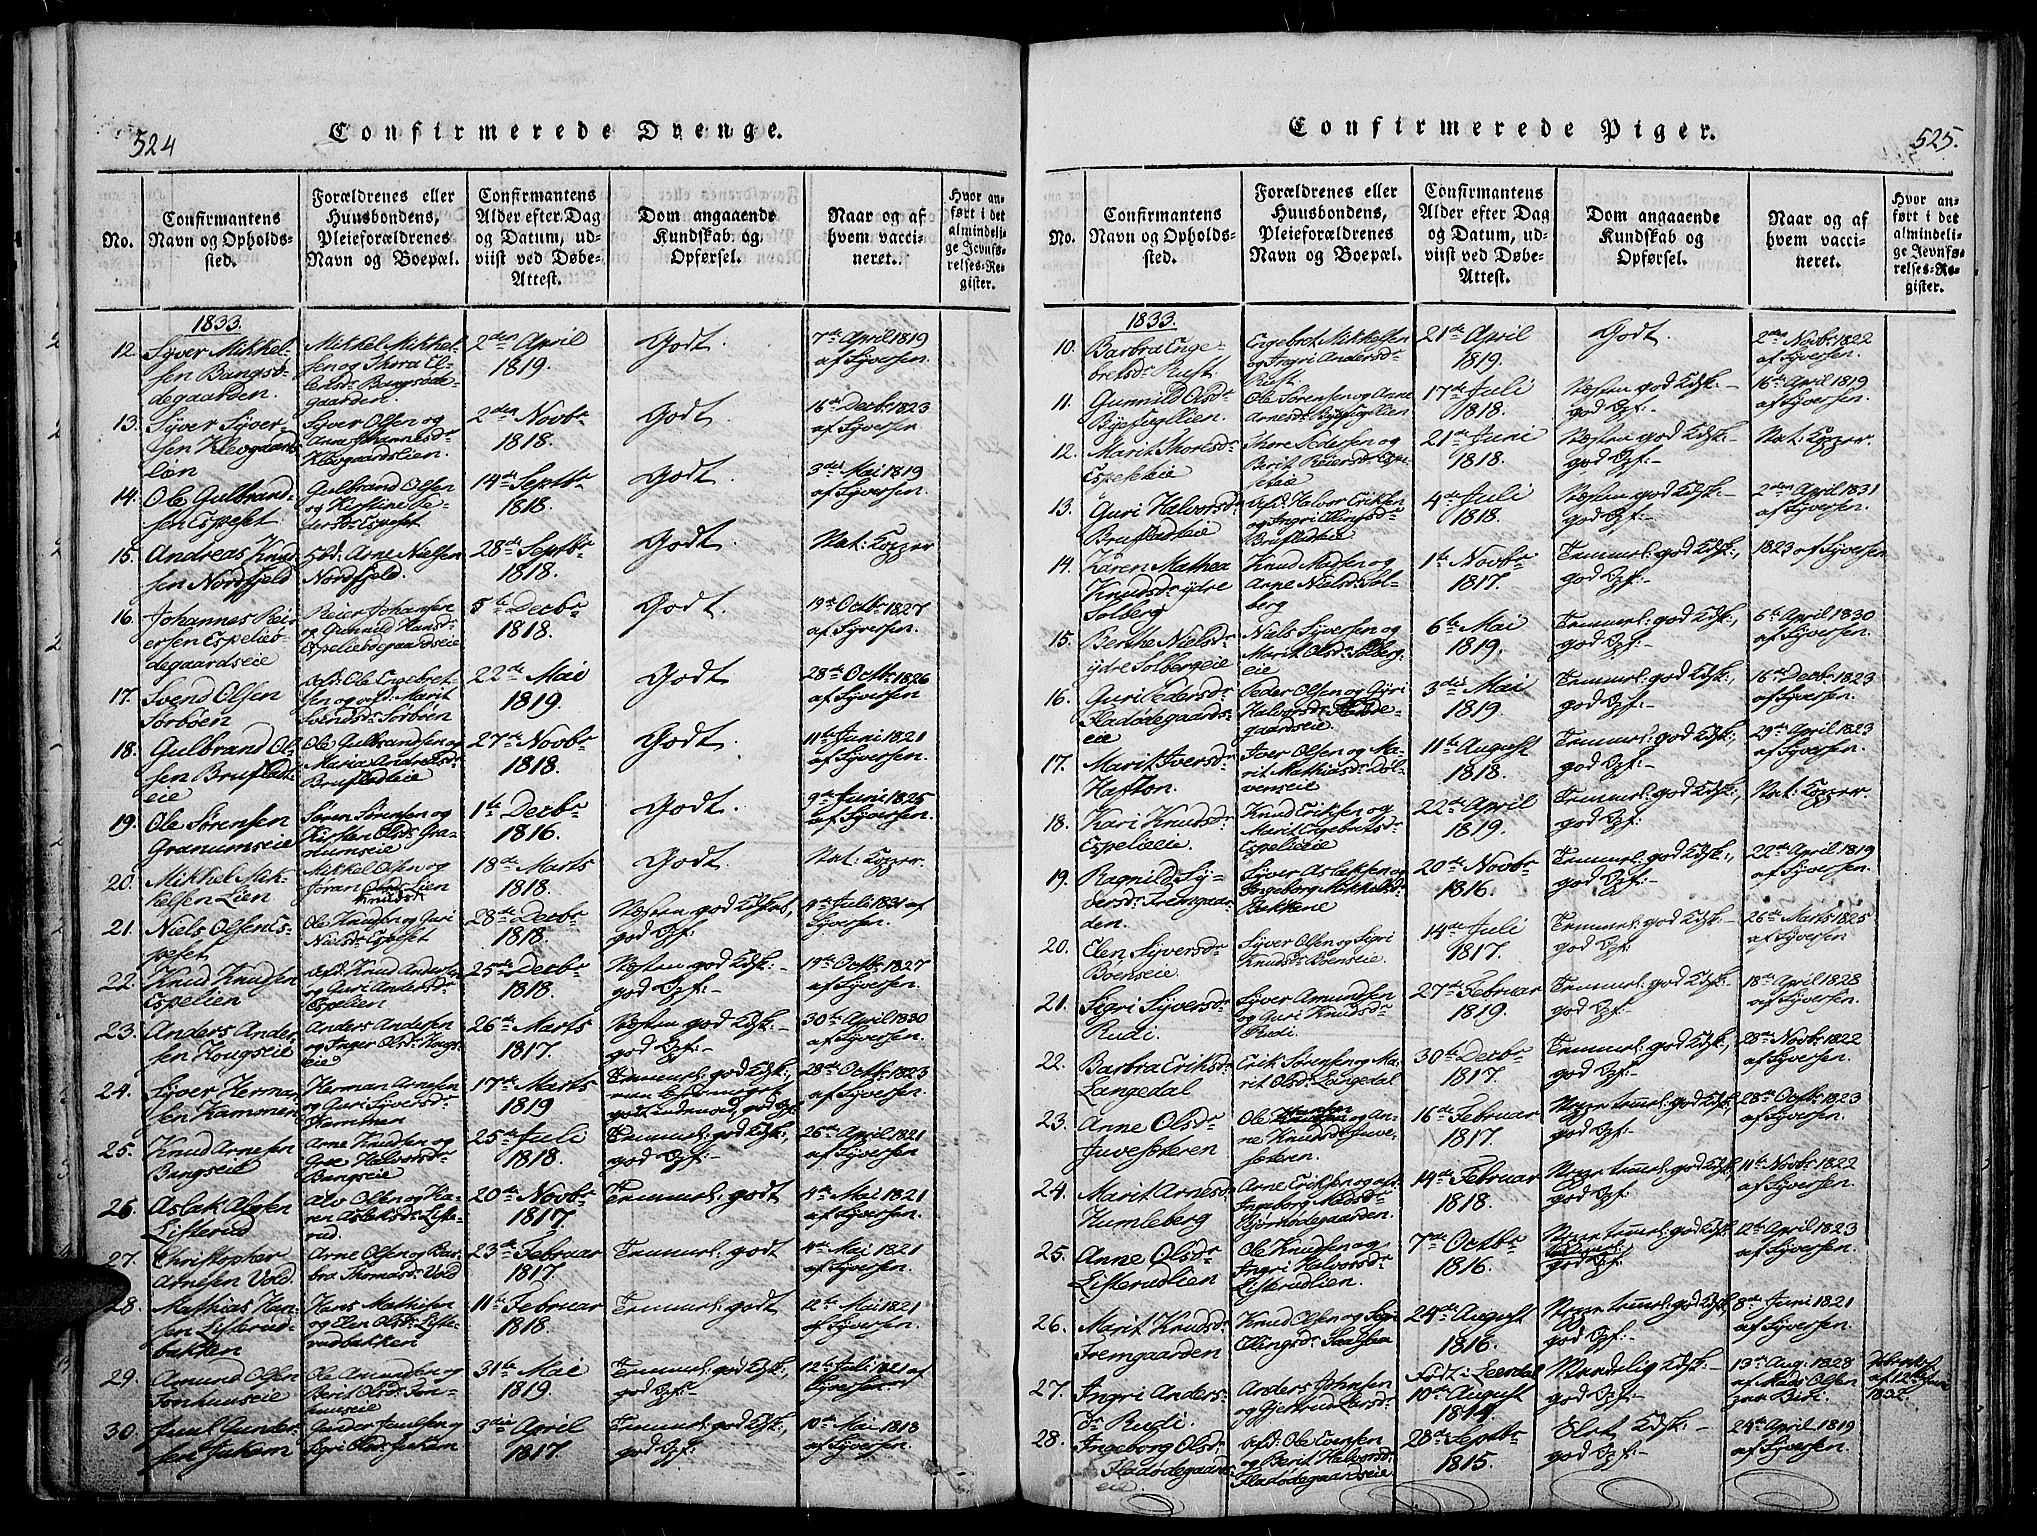 524
Confirmerede Drenge.
No.
Confirmantens
Navn og Opholds-
sted.
Forældrenes eller
Huusbondens,
Pleieforældrenes
Navn og Boepæl.
Confirmantens
Alder efter Dag
og Datum, ud-
viist ved Døbe-
Attest.
Dom angaaende
Kundskab og
Opførsel.
Naar og af
hvem vacci-
neret.
Hvor an-
ført i det
almindeli-
ge Jevnfø-
relses-Re-
gister.
1833.
12.
Syver Mikkel-
sen Bangsø-
degaarden.
Mikkel Mikkel-
sen og Thora El-
Bangsøde-
gaarden.
2den April
1819.
Godt.
7de April 1819
af Syversen.
13.
Syver Syver-
sen Klevgaards-
læn
Syver Olsen og
Anne Johannesdr
Klevgaardslien.
2den Novbr
1818.
Godt
16de Decbr 1823
af Syversen
14.
Ole Gulbrand-
sen Espeset.
Gulbrand Olsen
og Kirstine Pe-
dersdr Espeset
14de Septbr
1818.
Godt
3die Mai 1819
af Syversen.
15.
Andreas Knud-
sen Nordfjeld
Arne Nielsen
Nordfjeld.
28de Septbr
1818.
Godt
Nat: Kopper
16.
Johannes Rei-
ersen Espeliø-
degaardseie
Reier Johansen
og Gunnild Hansdr
5te Decbr
1818.
Godt
19de Octbr 1827
af Syversen.
17.
Svend Olsen
Sørbøen
afd: Ole Engebret-
sen og afd: Marit
Svendsdr Sørbøen
22de Mai
1819.
Godt
28de Octbr 1826
af Syversen.
18.
Gulbrand Ol-
sen Brufladt-
eie
Ole Gulbrandsen og
Maria Andreasdr
Brufladeie
27de Novbr
1818.
Godt.
11te Juni 1821
af Syversen.
19.
Ole Sørensen
Granumseie
Søren Sørensen og
Kirsten Olsdr Gra-
numseie
1te Decbr
1816.
Godt.
9de Juni 1825
af Syversen.
20.
Mikkel Mik-
kelsen Lien
Mikkel Olsen og
Jøran Lien
Knudsdr
18de Marts
1818.
Godt.
Nat: Kopper.
21.
Niels Olsen Es-
peset
Ole Knudsen og Guri
Nielsdr Espeset
28de Decbr
1818.
Næsten god Kdskab,
god Opf:-
9de Juli 1821 af
Syversen.
22.
Knud Knudsen
Espelien
Afd: Knud Andersen
og Guri Andersdr
Espelien
25de Decbr
1818.
Næsten god Kdsk:-
god Opf:-
19de Octbr 1827
af Syversen.
23.
Anders Ander-
sen Hougseie
Anders Andersen
og Inger Olsdr Hougs-
eie
26de Marts
1817.
Næsten god Kdsk:-
god Opf:-
30te April 1830
af Syversen.
24.
Syver Herman-
sen Kammen
Herman Arnesen
og Guri Syversdr
Kammen
17de Marts
1819
Temmel: god Kdsk:,
28de Octbr 1823
af Syversen.
25.
Knud Arnesen
Bangseie
Arne Knudsen og
Halvorsdr
Bangseie
25de Juli
1818.
Temmel: god Kdsk:,
god Opf:-
26de April 1821
af Syversen.
26.
Aslak Alfsen
Listerud
Alv Olsen og Ka-
ren Aslaksdr Liste-
rud
20de Novbr
1817.
Temmel: godt
4de Mai 1821
af Syversen.
27.
Christopher
Arnesen Vold
Arne Olsen og Bar-
bra Thomasdr Vold
23de Februar
1817.
Temmel: godt
4de Mai 1821
af Syversen.
28.
Mathias Han-
sen Listerud-
bakken
Hans Mathisen
og Elen Olsdr Liste-
rudbakken
11te Februar
1818.
Temmel: godt
12te Mai 1821
af Syversen.
29.
Amund Olsen
Tonhuuseie
Ole Amundsen og
Berit Olsdr Ton-
huuseie
31te Mai
1819.
Temmel: god Kdsk:,
god Opf:
12te Juli 1821 af
Syversen.
30.
Juul Gunder-
sen
Gunder Juulsen og
Sigri Olsdr
3die April
1817.
Temmel: god Kdsk:,
god Opf:-
10de Mai 1818
af Syversen.
525.
Confirmerede Piger.
No.
Confirmantens
Navn og Opholds-
sted.
Forældrenes eller
Huusbondens,
Pleieforældrenes
Navn og Boepæl.
Confirmantens
Alder efter Dag
og Datum, ud-
viist ved Døbe-
Attest.
Dom angaaende
Kundskab og
Opførsel.
Naar og af
hvem vacci-
neret.
Hvor an-
ført i det
almindeli-
ge Jevnfø-
relses-Re-
gister.
1833.
10.
Barbra Enge-
bretsdr Rust.
Engebret Mikkelsen
og Ingri Andersdr
Rust.
21de April
1819.
Godt.
2den Novbr 1822
af Syversen.
11.
Gunnild Olsdr
Byefugllien.
Ole Sørensen og Anne
Arnesdr Byefuglien
17de Juli
1818.
Næsten god Kdsk:-
god Opf:-
16de April 1819
af Syversen.
12.
Marit Thoresdr
Espeseteie
Thore Pedersen og
Berit Reiersdr Espe-
seteie
21de Juni
1818.
Næsten god Kdsk:-
god Opf:-
Nat: Kopper.
13.
Guri Halvorsdr
Brufladeie
Afd: Halvor Eriksen
og Ingri Ellingsdr
Brufladeie
4de Juli
1818.
Næsten god Kdsk:-
god Opf:-
2den April 1831
af Syversen.
14.
Karen Mathea
Knudsdr ydre
Solberg
Knud Madsen og
Anne Nielsdr Sol-
berg
1te Novbr
1817.
Temmel: god Kdsk:,
god Opf:-
1823 af Syversen
15.
Berthe Nielsdr
ydre Solbergeie
Niels Syversen og
Marit Olsdr Solberg-
eie
6te Mai
1819.
Temmel: god Kdsk:,
god Opf:-
6te April 1830
af Syversen.
16.
Guri Pedersdr
Fladødegaards-
eie
Peder Olsen og Gyri
Halvorsdr Fladøde-
gaardseie
3die Mai
1819.
Temmel: god Kdsk:,
god Opf:-
16de Decbr 1823
af Syversen.
17.
Marit Iversdr
Hafton.
Iver Olsen og Ma-
rit Mathiasdr Døl-
venseie
11te August
1818.
Temmel: god Kdsk:,
god Opf:-
29de April 1823
af Syversen.
18.
Kari Knudsdr
Espelieeie
Knud Eriksen og
Marit Engebretsdr
Espelieeie
22de April
1819.
Temmel: god Kdsk:,
god Opf:-
Nat: Kopper.
19.
Ragnild Sy-
versdr Fremgaar-
den.
Syver Aslaksen og
Ingeborg Mikkelsdr
Bakkene
20de Novbr
1816.
Temmel: god Kdsk:,
god Opf:-
22de April 1819
af Syversen.
20.
Elen Syversdr
Boenseie
Syver Olsen og Sigri
Knudsdr Boenseie.
14de Juli
1817.
Temmel: god Kdsk:-
god Opf:-
26de Marts 1825
af Syversen
21.
Sigri Syversdr
Rudi.
Syver Amundsen
og Guri Knudsdr
Rudi
27de Februar
1819.
Temmel: god Kdsk:-
god Opf:-
18de April 1828
af Syversen.
22.
Barbra Eriksdr
Langedal
Erik Sørensen og Ma-
rit Olsdr Langedal
30te Decbr
1817.
Temmel: god Kdsk:,
god Opf:-
28de Novbr 1822
af Syversen.
23.
Anne Olsdr
Juvesæteren
Ole Hansen og An-
ne Knudsdr Juve-
sæteren.
16de Februar
1817.
Noget temel: god Kdsk:,
god Opf:-
28de Octbr 1823
af Syversen.
24.
Marit Arnesdr
Humleberg
Arne Eriksen og afd:
Ingeborg Madsdr
Bjørnødegaarden.
14de Februar
1818.
god Opf:-
11te Novbr 1822
af Syversen.
25.
Anne Olsdr
Listerudlien
Ole Knudsen og
Ingri Halvorsdr
Listerudlien.
7de Octbr
1816.
god Opf:-
12te April 1823
af Syversen.
26.
Marit Knudsdr
Fremgaarden
Knud Olsen og Sigri
Ellingsdr
24de August
1816.
god Opf:-
8de Juni 1821
af Syversen.
27.
Ingri Anders-
dr Rudi.
Anders Johnsen
og Gjertrud Larsdr
Født i Leerdal
10de August
1814.
Maadelig Kdsk:-
god Opf:-
13de Aug. 1828
af Niels Olsen
Biri
af 12te Juni
1832
28.
Ingeborg Olsdr
Fladødegaards-
eie.
Afd: Ole Evensen
og Berit Halvorsdr
Fladødegaardseie
28de Septbr
1815.
Slet Kdsk:-
god Opf:-
24de April 1819
af Syversen.